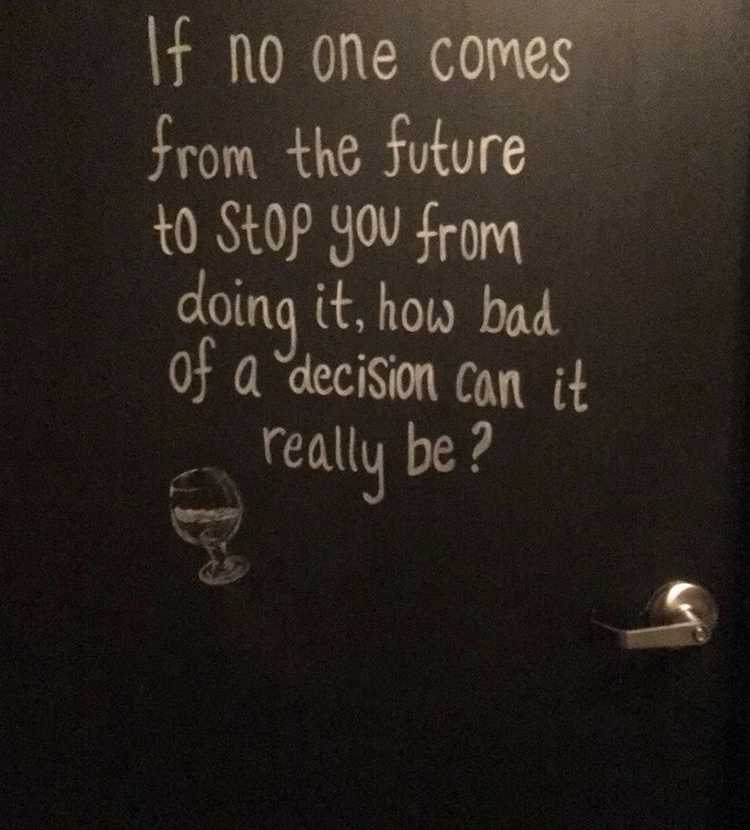 If no one comes
from the future
to stop you from
doing it, how bad
of a decision can it
really be?